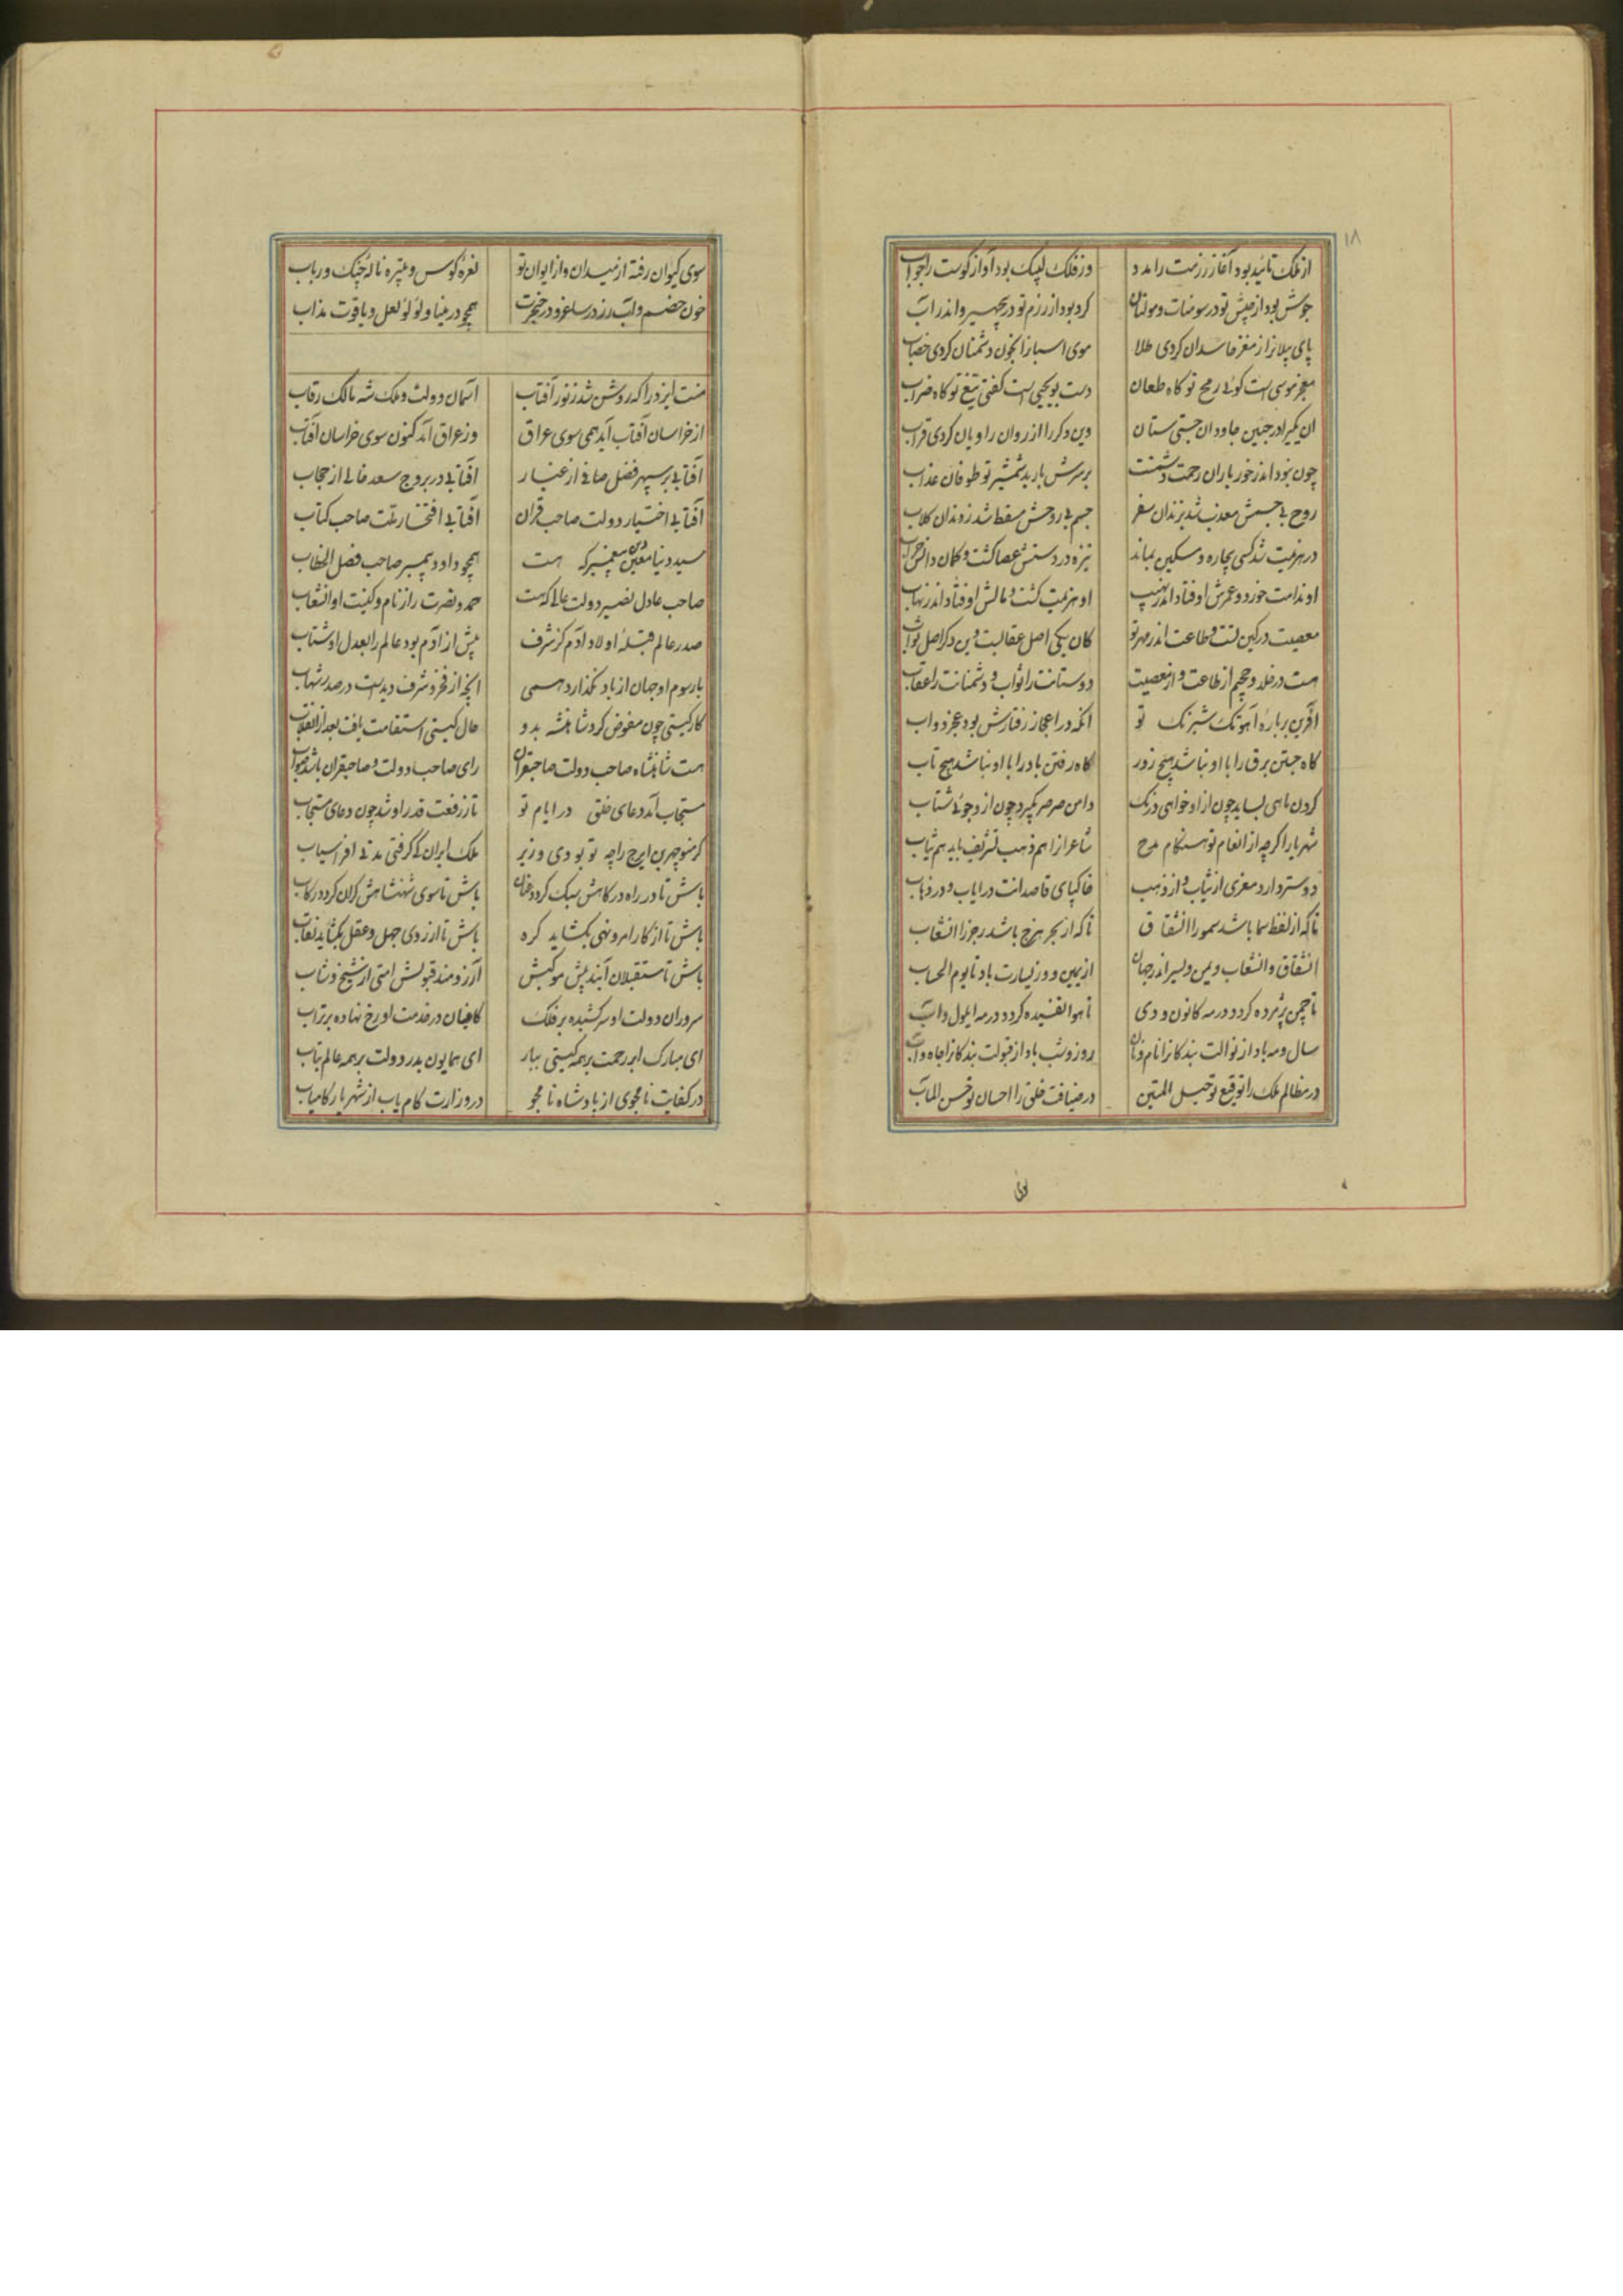 ۱۸
از ملک تائید بود آغاز رزمت را مدد وز فلک لبیک بود آواز کوست را جواب
جوش بود از جیش تو در سومنات و مولتان کرد بود از رزم تو در بحیره و اندر آب
پای پیلانرا ز مغز حاسدان کردی طلا موی اسبانرا بخون دشمنان کردی خضاب
معجز موسی است کوئی رمح تو کاه طعان دست بویحیی است کفتی تیغ تو کاه ضراب
چون نبود اندر خور باران رحمت دشمنت بر سرش بارید شمشیر تو طوفان عذاب
روح بی جسمش معذب شد بزندان سقر جسم بی روحش مسقط شد ز دندان کلاب
در هزیمت شد کسی بیچاره و مسکین بماند نیزه در دستش عصا کشت و کمان
او ندامت خورد و عمرش اوفتاد اندر نهیب او هزیمت کشت و مالش اوفتاد اندر نهاب
معصیت در کین تست و طاعت اندر مهر تو کان یکی اصل عقابست وین دکر اصل ثواب
هست در خلد و جحیم از طاعت و از معصیت دوستانت را ثواب و دشمنانت را عقاب
آفرین بر باره آهوتک شبرنک تو آنکه در اعجاز رفتارش بود عجز دواب
کاه جستن برق را با او نباشد هیچ زور کاه رفتن باد را با او نباشد هیچ تاب
کردن ماهی بساید چون ازو خواهی درنک دامن صرصر بگیرد چون ازو جوئی شتاب
شهریارا کرچه از انعام تو هنکام مدح شاعرانرا هم ذهب تشریف باید هم ثیاب
دوستر دارد معزی از ثیاب و از ذهب خاکپای قاصدانت در ایاب و در ذهاب
تا که از لفظ سما باشد سمو را انشقاق تا که از بحر هزج باشد رجز را انشعاب
انشقاق و انشعاب و یمن و یسر اندر جهان از یمین و وز یسارت باد تا یوم الحساب
تا چمن پژمرده کردد در مه کانون و دی تا هوا تفسیده کردد در مه ایلول و آب
سال و مه باد از نوالت بندکانرا نام و نان روز و شب باد از قبولت بندکانرا جاه و آب
در مظالم ملک را توقیع تو حبل المتین در ضیافت خلق را احسان تو حسن المآب
سوی کیوان رفته از میدان و از ایوان تو نعره کوس و تبیره ناله چنک و رباب
خون خصم و آب رز در ساغر و در خنجرت همچو در مینا و لؤلؤ لعل و یاقوت مذاب
منت ایزد را که روشن شد ز نور آفتاب آسمان دولت و ملک شه مالک رقاب
از خراسان آفتاب آید همی سوی عراق وز عراق آمد کنون سوی خراسان آفتاب
آفتابی بر سپهر فضل صافی از غبار آفتابی در بروج سعد خالی از حجاب
آفتابی اختیار دولت صاحب قران آفتابی افتخار ملت صاحب کتاب
سید دنیا معین دین پیغمبر که هست همچو داود پیمبر صاحب فصل الخطاب
صاحب عادل نصیر دولت عالی که هست حمد و نصرت را ز نام و کنیت او انشعاب
صدر عالم قبله اولاد آدم کز شرف پیش از آدم بود عالم را بعدل او شتاب
با رسوم او جهان از یاد نگذارد همی آنچه از فخر و شرف دیدست در صدر شهاب
کار کیتی چون مفوض کرد شاهنشه بدو حال کیتی استقامت یافت بعد از انقلاب
هست شاهنشاه صاحب دولت صاحبقران رای صاحب دولت و صاحبقران باشد صواب
مستجاب آمد دعای خلق در ایام تو تا ز رفعت قدر او شد چون دعای مستجاب
کر منوچهر بن ایرج را چو تو بودی وزیر ملک ایران کی کرفتی مدتی افراسیاب
باش تا در راه درکاهش سبک کردد عنان باش تا سوی شهنشاهش کران کردد رکاب
باش تا از کار امر و نهی بکشاید کره باش تا از روی جهل و عقل بکشاید نقاب
باش تا مستقبلان آیند پیش موکبش آرزومند قبولش امتی از شیخ و شاب
سروران دولت او سر کشیده بر فلک کافیان در خدمت او رخ نهاده بر تراب
ای مبارک ابر رحمت بر همه کیتی ببار ای همایون بدر دولت بر همه عالم بتاب
در کفایت نامجوی از پادشاه نامجو در وزارت کام یاب از شهریار کامیاب